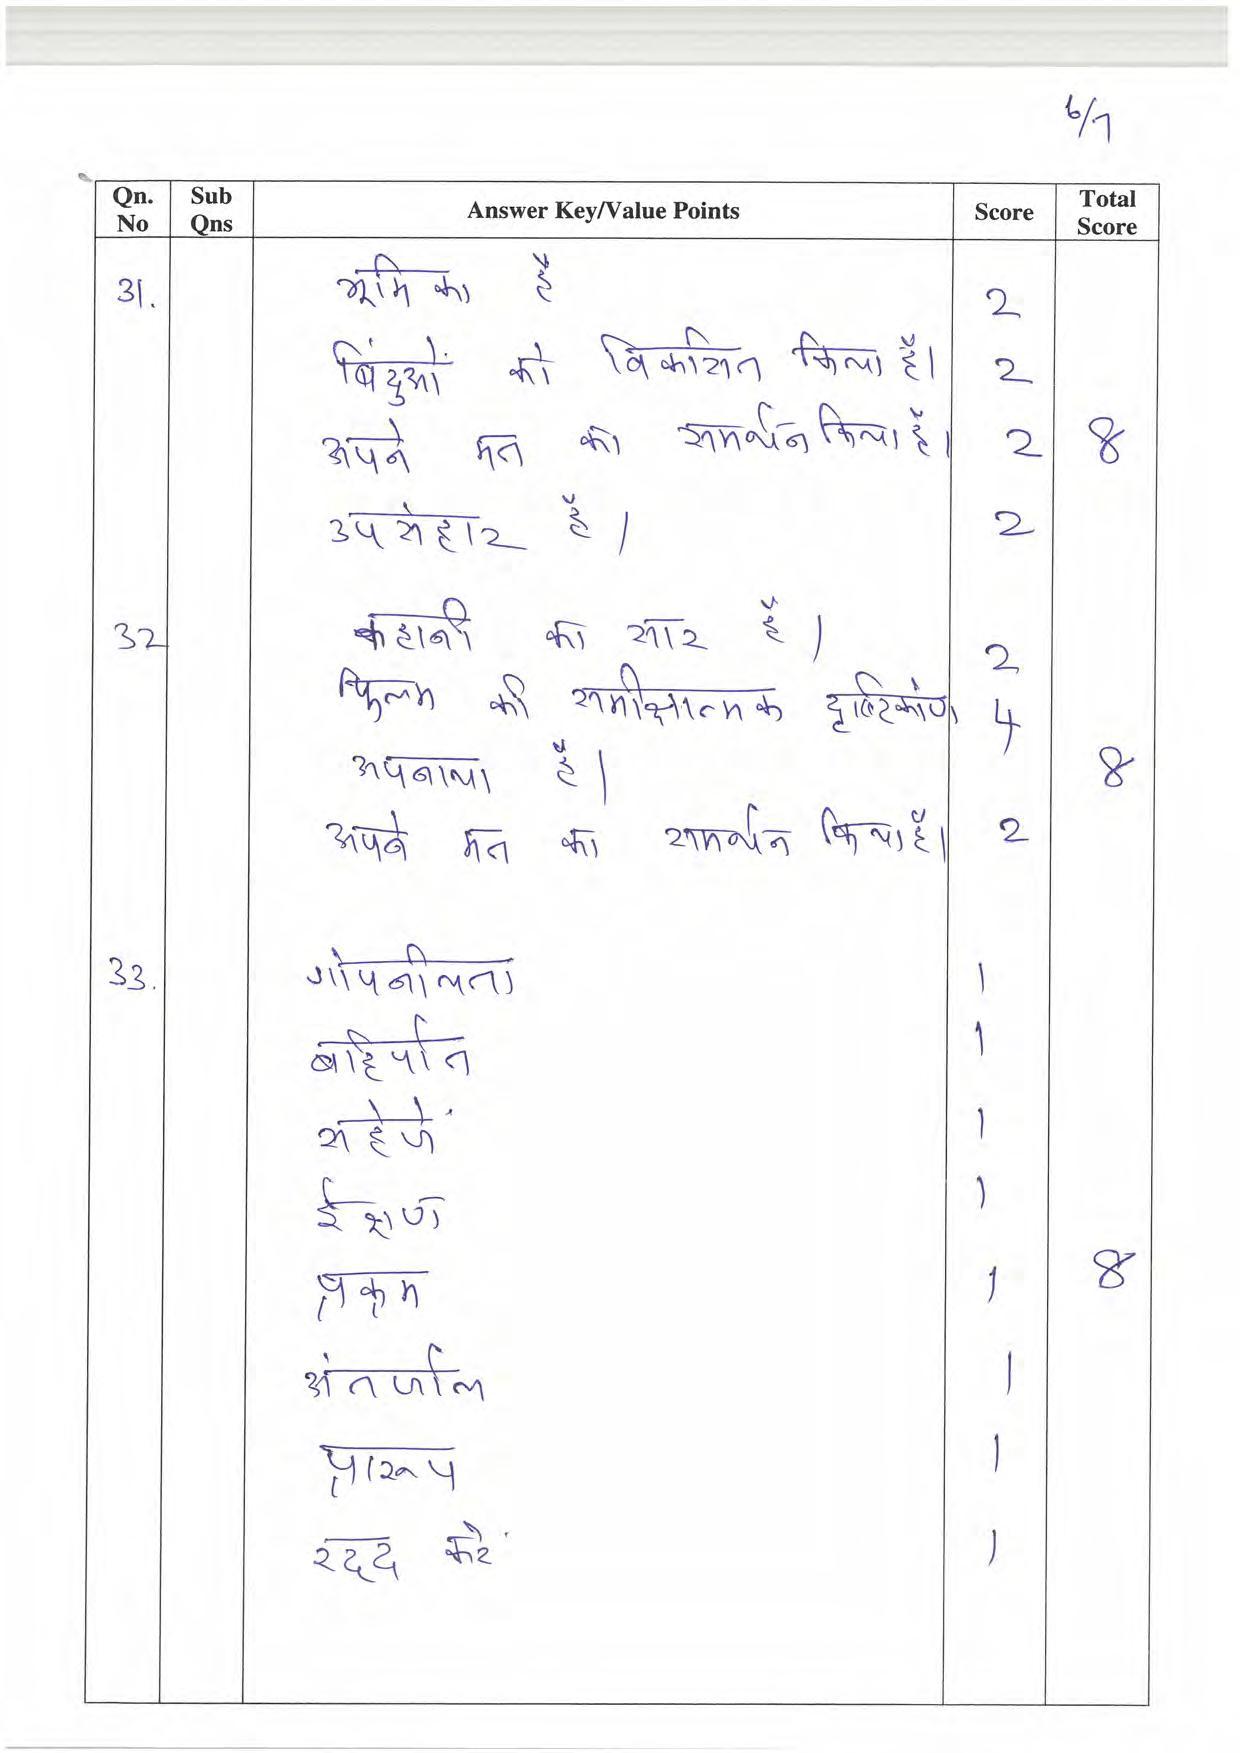 6/7
Qn. No Sub Qns Answer Key/Value Points Score Total Score
31. भूमिका है 2
बिंदुओं को विकसित किया है। 2
अपने मत का समर्थन किया है। 2 8
उपसंहार है। 2
32 कहानी का सार है। 2
फिल्म की समीक्षात्मक दृष्टिकोण 4
अपनाया है। 8
अपने मत का समर्थन किया है। 2
33. गोपनीयता 1
बहिर्पात 1
सहेजें 1
ईक्षण 1
प्रक्रम 1 8
अंतर्जाल 1
प्रारूप 1
रद्द करें 1